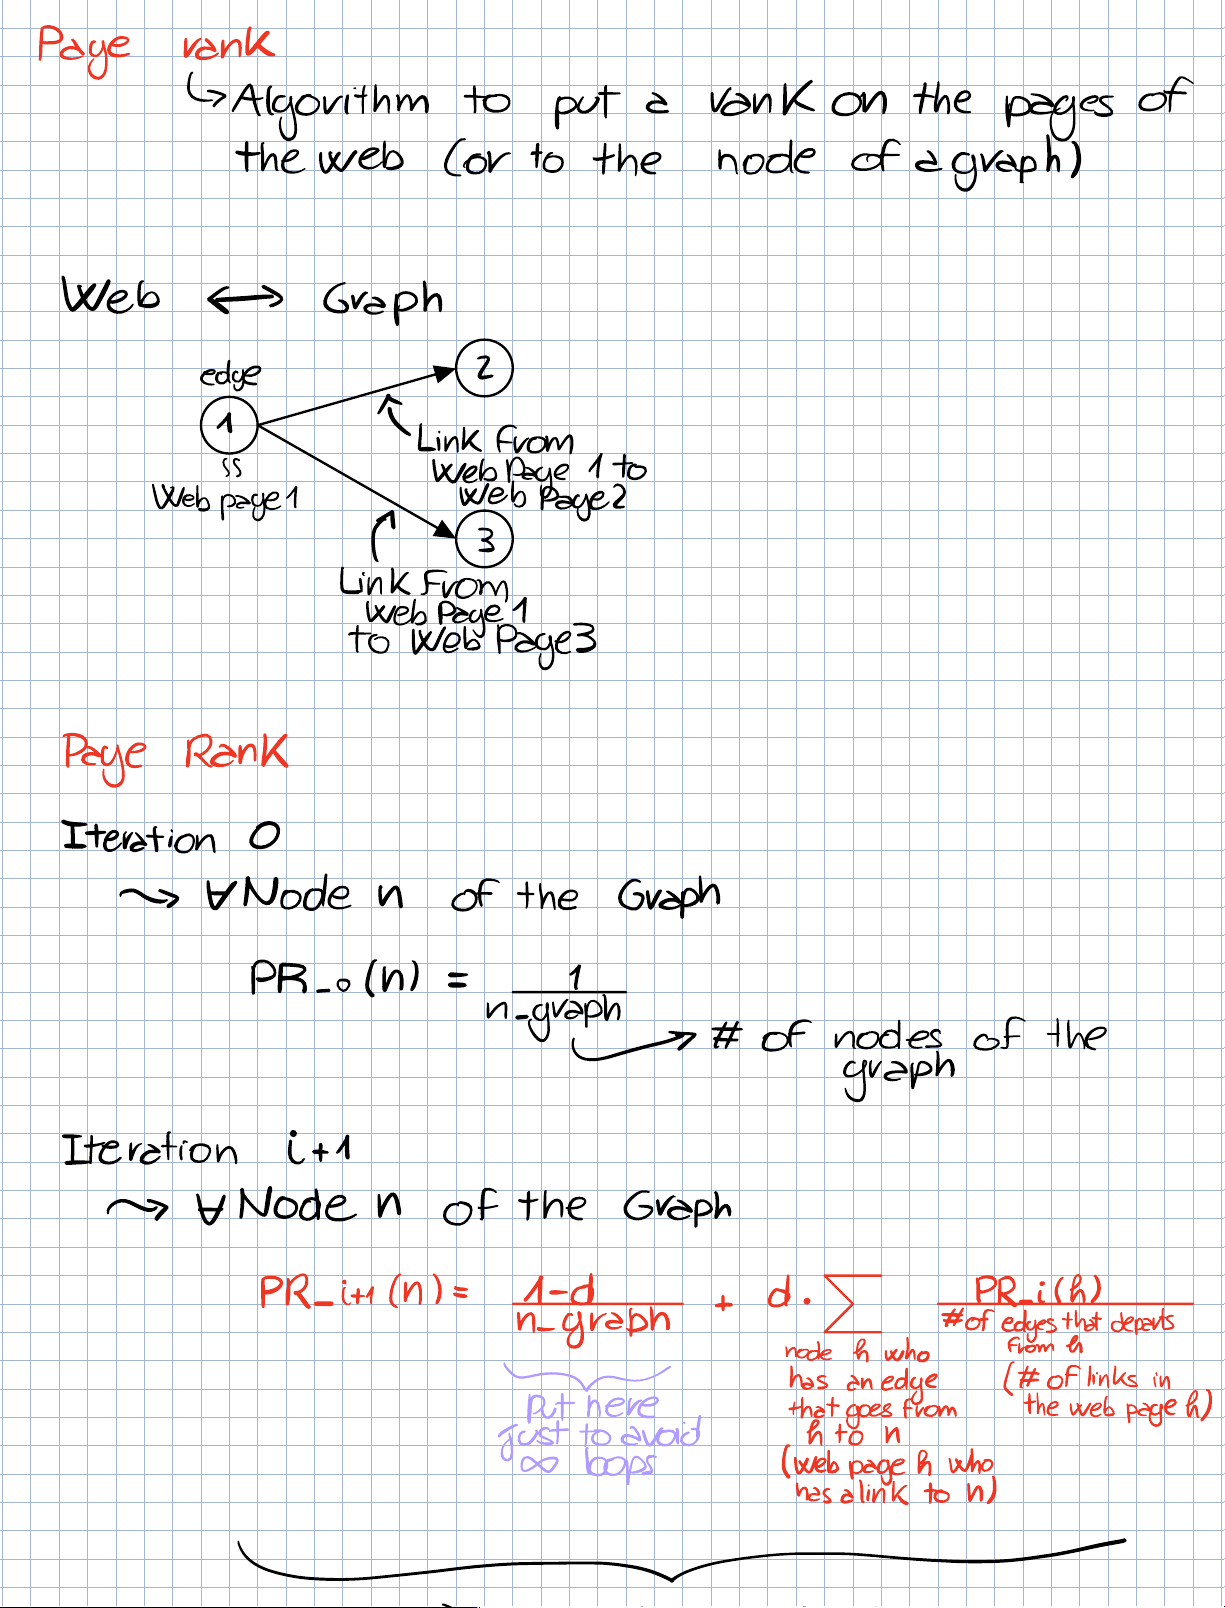 Page rank
↳ Algorithm to put a rank on the pages of
the web (or to the node of a graph)
Web ↔ Graph
edge
1
2
ss
Web page 1
Link From
Web Page 1 to
Web Page 2
3
Link From
Web Page 1
to Web Page 3
Page Rank
Iteration 0
⤳ ∀ Node n of the Graph
PR_0 (n) = 1 / n_graph
→ # of nodes of the
graph
Iteration i+1
⤳ ∀ Node n of the Graph
PR_i+1 (n) = 1-d / n_graph + d · ∑ PR_i(h) / # of edges that departs
from h
(# of links in
the web page h)
node h who
has an edge
that goes from
h to n
(web page h who
has a link to n)
put here
just to avoid
∞ loops